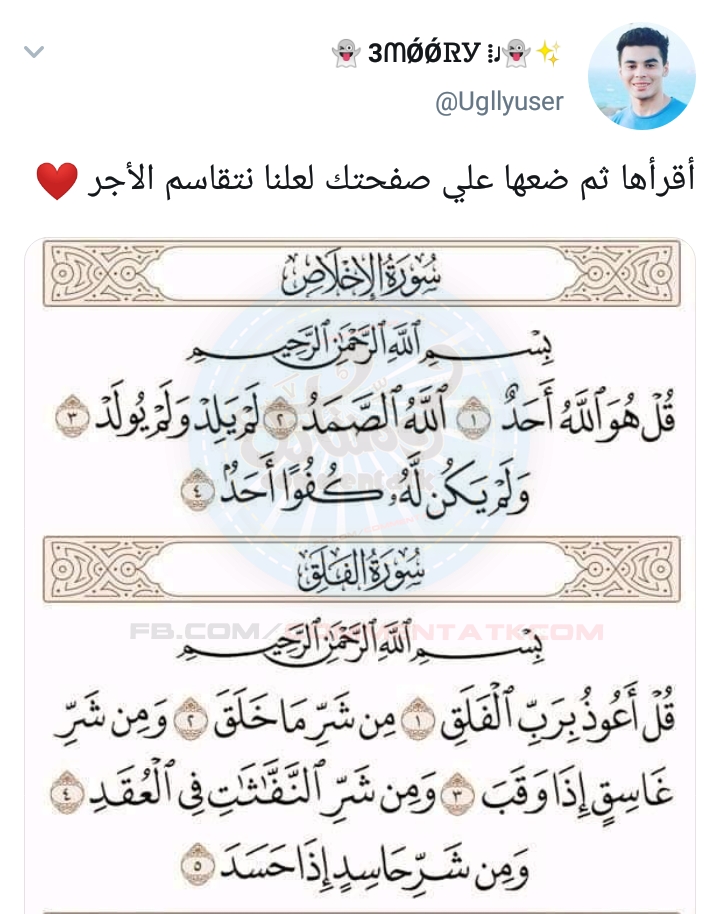 👻 3ᗰǿǿᖇƳ ⁞♩👻✨
@Ugllyuser
أقرأها ثم ضعها علي صفحتك لعلنا نتقاسم الأجر ❤️
سُورَةُ الإِخْلَاصِ
بِسْمِ ٱللَّهِ ٱلرَّحْمَٰنِ ٱلرَّحِيمِ
قُلْ هُوَ ٱللَّهُ أَحَدٌ ١ ٱللَّهُ ٱلصَّمَدُ ٢ لَمْ يَلِدْ وَلَمْ يُولَدْ ٣
وَلَمْ يَكُن لَّهُۥ كُفُوًا أَحَدٌۢ ٤
سُورَةُ الفَلَقِ
FB.COM/COMMENTATKCOM
بِسْمِ ٱللَّهِ ٱلرَّحْمَٰنِ ٱلرَّحِيمِ
قُلْ أَعُوذُ بِرَبِّ ٱلْفَلَقِ ١ مِن شَرِّ مَا خَلَقَ ٢ وَمِن شَرِّ
غَاسِقٍ إِذَا وَقَبَ ٣ وَمِن شَرِّ ٱلنَّفَّٰثَٰتِ فِى ٱلْعُقَدِ ٤
وَمِن شَرِّ حَاسِدٍ إِذَا حَسَدَ ٥